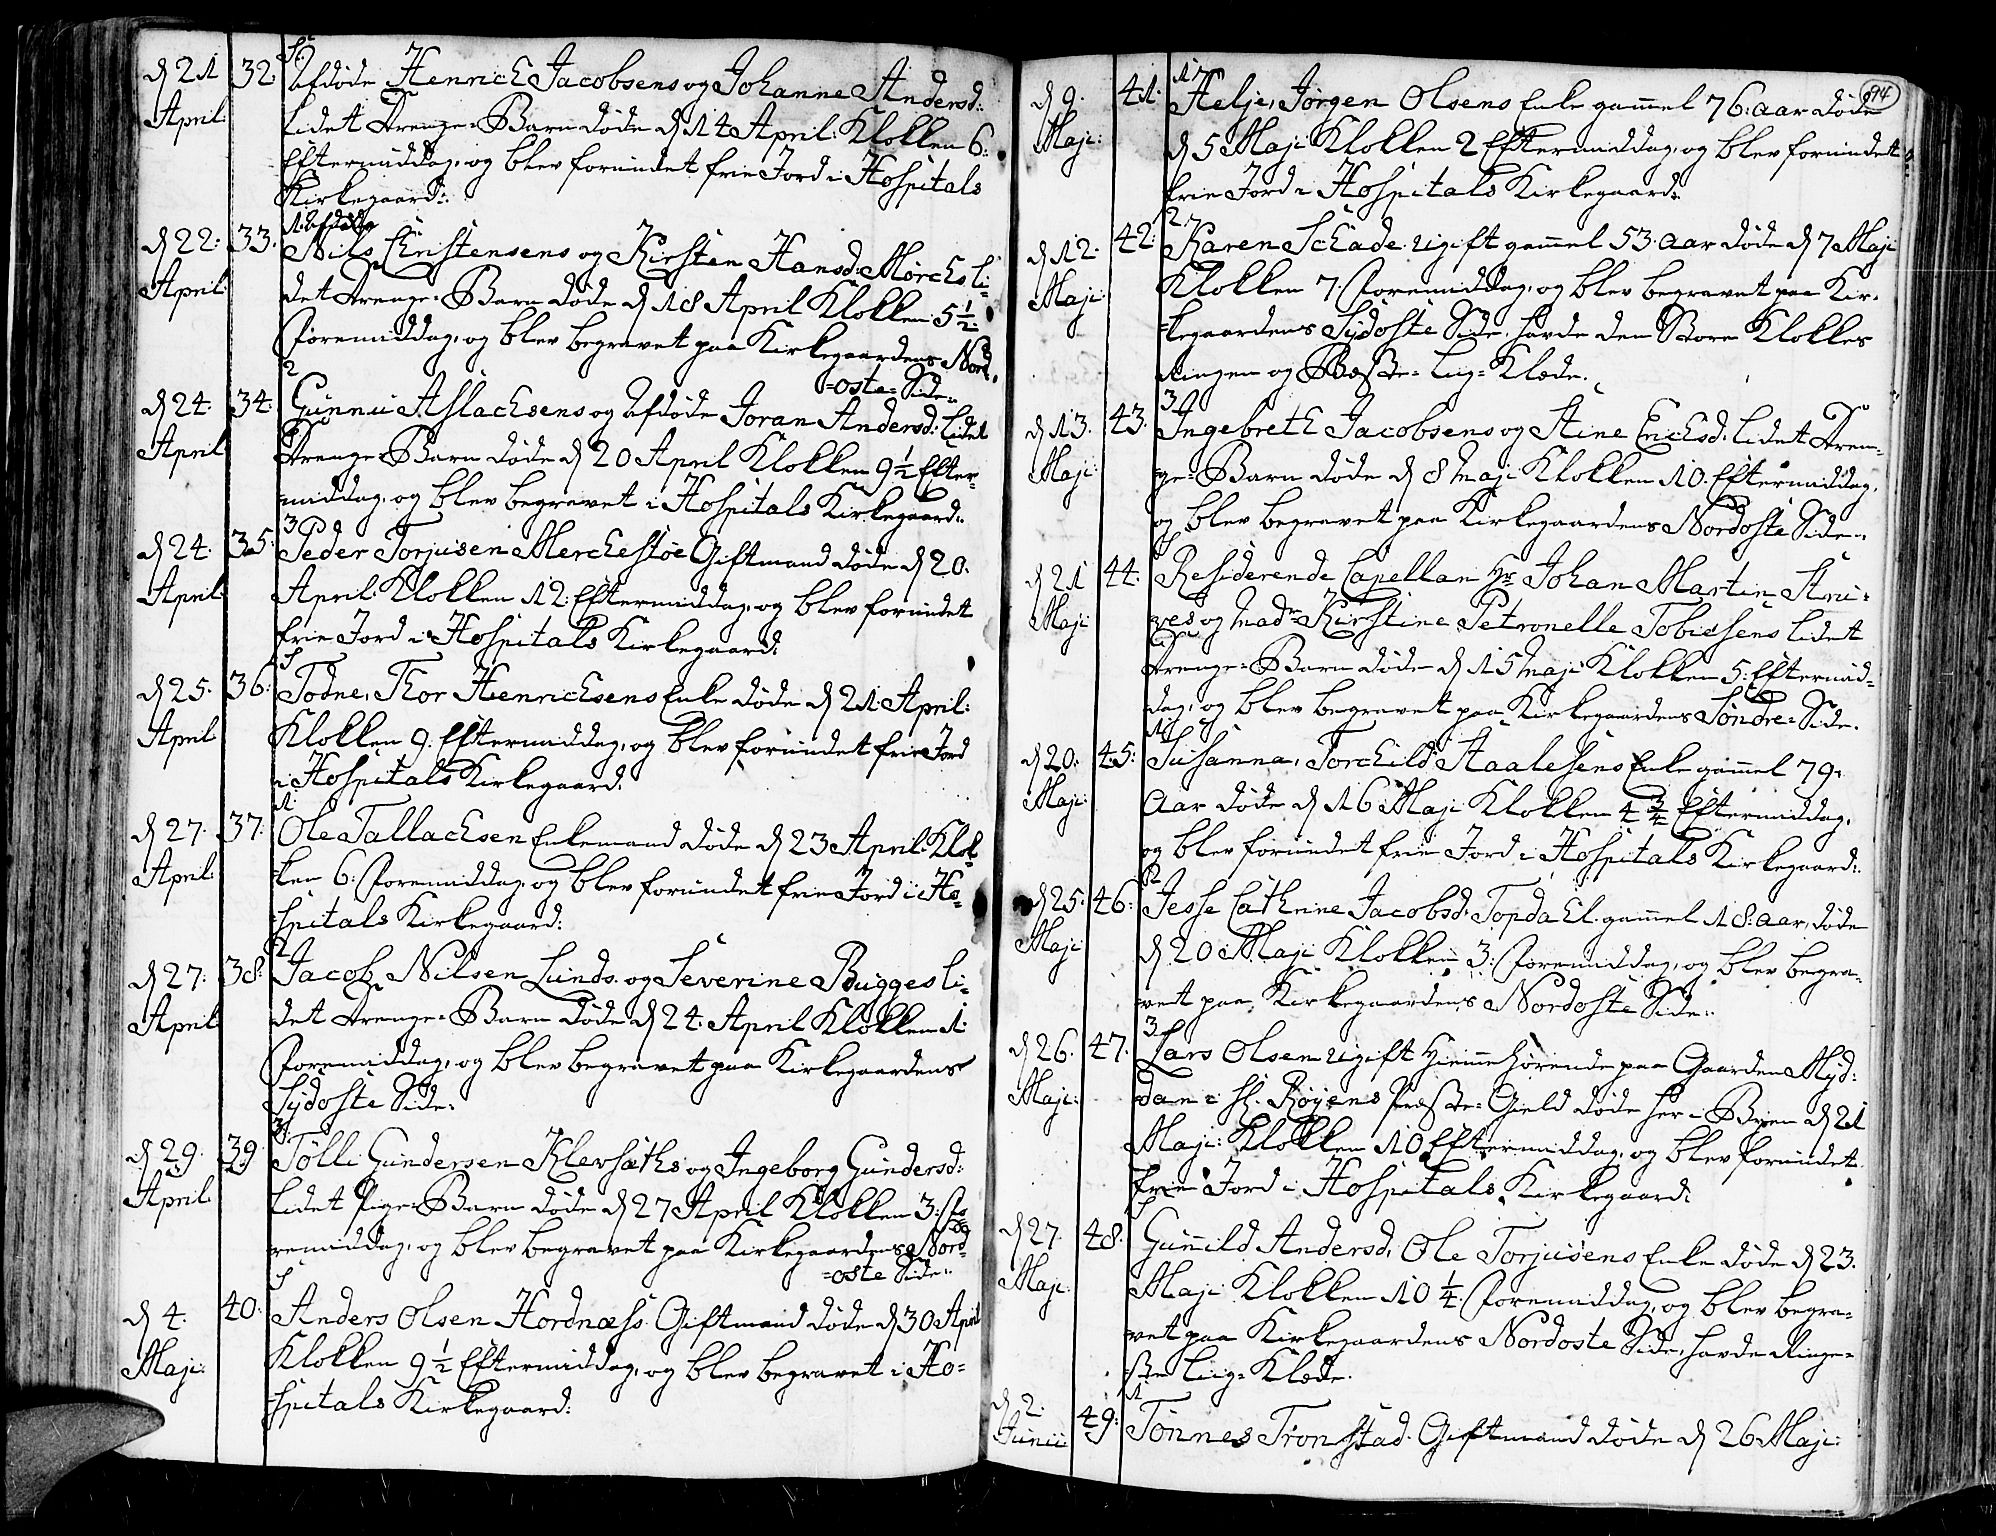 d 21 April: 32. Afdøde Henrich Jacobsens og Johanne Andersd:
lidet Drenge-Barn døde d 14 April: Klokken 6:
Eftermiddag, og blev forundet frie Jord i Hospitals
Kirkegaard:
d 22: April: 33. Nils Christensens og Kirsten Hansd: Mørchs li-
det Drenge-Barn døde d 18 April Klokken 5 1/2
Formiddag, og blev begravet paa Kirkegaardens Nord
=oste=Side.
2
d 24. April 34. Gunnu Aslachsens og Afdøde Joran Andersd: lidet
Drenge-Barn døde d 20 April Klokken 9 1/2 Efter-
middag, og blev begravet i Hospitals Kirkegaard:
3
d 24. April: 35. Peder Torjusen Merckestøe Giftmand døde d 20.
April: Klokken 12: Eftermiddag, og blev forundet
frie Jord i Hospitals Kirkegaard:
d 25. April 36. Todne, Thor Henrichsens Enke døde d 21. April:
Klokken 9. Eftermiddag, og blev forundet frie Jord
i Hospitals Kirkegaard:
1.
d 27. April: 37. Ole Tallachsen Enkemand døde d 23 April: Klok-
ken 6: Formiddag, og blev forundet frie Jord i Ho-
spitals Kirkegaard:
2
d 27: April 38. Jacob Nilsen Lunds og Severine Bugges li-
det Drenge-Barn døde d 24. April Klokken 1.
Formiddag, og blev begravet paa Kirkegaardens
Sydoste Side:
3.
d 29. April 39. Tølli Gundersen Klevsæths og Ingeborg Gundersd:
lidet Pige-Barn døde d 27 April Klokken 3: Fo-
remiddag, og blev begravet paa Kirkegaardens Nord-
=oste Side:
d 4. Maji: 40. Anders Olsen Hordnæss. Giftmand døde d 30 April
Klokken 9 1/2 Eftermiddag, og blev begravet i Ho-
spitals Kirkegaard:
94
1
d 9. Maji: 41. Helje, Jørgen Olsens Enke gammel 76: aar døde
d 5 Maji Klokken 2 Eftermiddag, og blev forundet
frie Jord i Hospitals Kirkegaard:
2
d 12. Maji: 42. Karen Schade. ugift gammel 53. aar døde d 7 Maji
Klokken 7. Formiddag, og blev begravet paa Kir-
kegaardens Sydoste Side, havde den Store Klokkes
Ringen og Bæste=Liig=Klæde.
3
d 13. Maji 43. Ingebreth Jacobsens og Stine Erichsd: lidet Dren-
ge-Barn døde d 8 Maji Klokken 10. Eftermiddag,
og blev begravet paa Kirkegaardens Nordoste Side:
d 21 Maji 44. Residerende Capellan Hr Johan Martin Stru-
ves og Madm Kirstine Petronelle Tobiesens lidet
Drenge-Barn døde d 15 Maji Klokken 5: Eftermid-
dag, og blev begravet paa Kirkegaardens Søndre=Side.
1
d 20. Maji: 45: Susanna, Torchild Staalesens Enke gammel 79:
Aar døde d 16 Maji Klokken 4 3/4 Eftermiddag,
og blev forundet frie Jord i Hospitals Kirkegaard:
2
d 25. Maji 46: Jesse Cathrine Jacobsd: Topdahl. gammel 18: aar, døde
d 20 Maji Klokken 3: Formiddag, og blev begra-
vet paa Kirkegaardens Nordoste Side:
3
d 26. Maji: 47. Lars Olsen ugift Hiemmehørende paa Gaarden Myd-
dan i Røyens Præste-Gield døde her i Byen d 21
Maji: Klokken 10 Eftermiddag, og blev forundet
frie Jord i Hospitals Kirkegaard:
d 27. Maji. 48. Gunnild Andersd, Ole Torjusens Enke døde d 23.
Maji Klokken 10 1/4. Formiddag, og blev begra-
vet paa Kirkegaardens Nordoste Side, havde Ringe-
ste Liig=Klæde.
1
d 2. Junii 49: Tønnes Tronstad. Giftmand døde d 26 Maji: